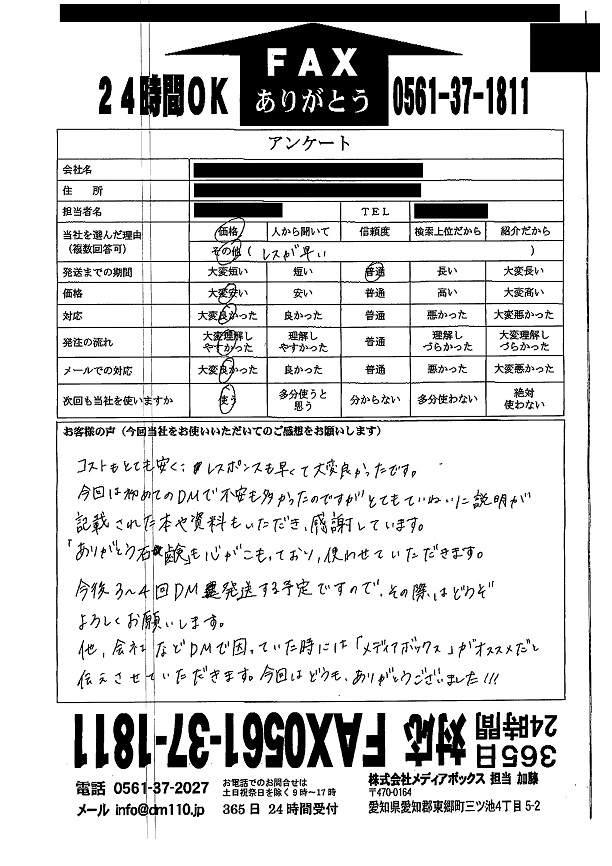 FAX
ありがとう
24時間OK
0561-37-1811
アンケート
会社名
住 所
担当者名 TEL
当社を選んだ理由 (複数回答可) 価格 人から聞いて 信頼度 検索上位だから 紹介だから
その他( レスが早い )
発送までの期間 大変短い 短い 普通 長い 大変長い
価格 大変安い 安い 普通 高い 大変高い
対応 大変良かった 良かった 普通 悪かった 大変悪かった
発注の流れ 大変理解しやすかった 理解しやすかった 普通 理解しづらかった 大変理解しづらかった
メールでの対応 大変良かった 良かった 普通 悪かった 大変悪かった
次回も当社を使いますか 使う 多分使うと思う 分からない 多分使わない 絶対使わない
お客様の声(今回当社をお使いいただいてのご感想をお願いします)
コストもとても安く、レスポンスも早くて大変良かったです。
今回は初めてのDMで不安も多かったのですがとてもていねいに説明が
記載された本や資料もいただき、感謝しています。
「ありがとう石鹸」も心がこもっており、使わせていただきます。
今後3〜4回DM発送する予定ですので、その際はどうぞ
よろしくお願いします。
他、会社などDMで困っていた時には「メディアボックス」がオススメだと
伝えさせていただきます。今回はどうも、ありがとうございました!!!
365日24時間対応 FAX0561-37-1811
電話 0561-37-2027
お電話でのお問合せは
土日祝祭日を除く9時〜17時
株式会社メディアボックス 担当 加藤
〒470-0164
メール info@dm110.jp
365日 24時間受付
愛知県愛知郡東郷町三ツ池4丁目 5-2